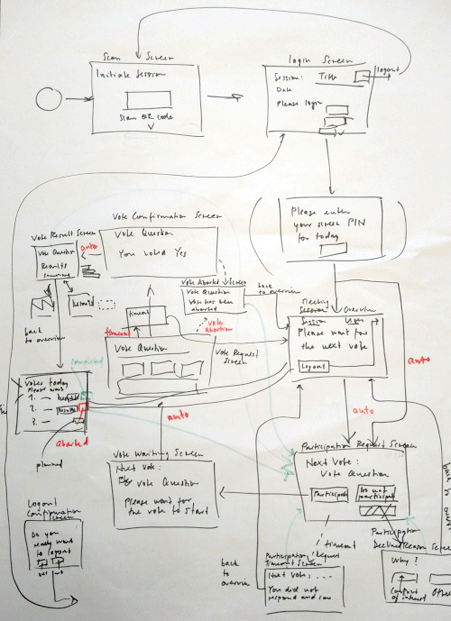 Scan Screen
Initiate Session
Scan QR code
login Screen
Session: Title
logout
Date
Please login
Please enter
your PIN
for today
Vote Result Screen
Vote Question
Results
auto
Vote Confirmation Screen
Vote Question
You voted Yes
Vote Aborted Screen
Vote Question
Vote has been
aborted
back
to overview
timeout
vote
abortion
Vote Question
Vote Request
Screen
Session Overview
Please wait for
the next vote
Logout
auto
back
to overview
Votes today
Please wait
1.
2.
3.
aborted
planned
auto
auto
Vote Waiting Screen
Next Vote:
Vote Question
Please wait for
the vote to start
Participation Request Screen
Next Vote:
Vote Question
Participate
Do not
participate
timeout
Logout
Confirmation
Screen
Do you
really want
to logout
back
to
overview
Participation Request
Timeout Screen
Next Vote: ...
You did not
respond and can
Participation
Declined Reason Screen
Why?
Conflict
of interest
back to